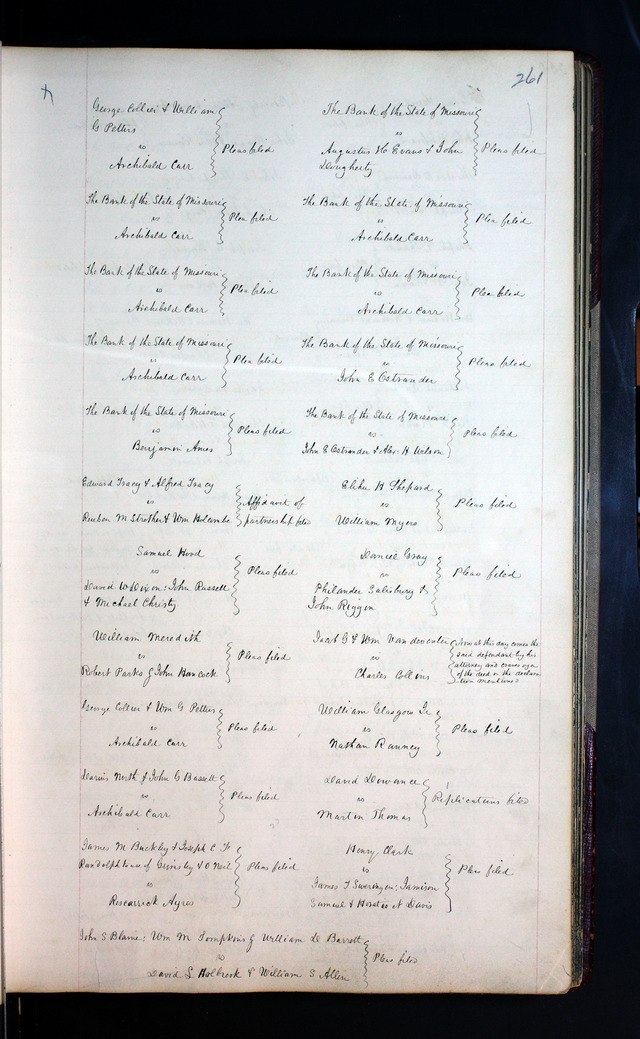 261
George Collier & William
G Pettus
vs
Archibald Carr
Pleas filed
The Bank of the State of Missouri
vs
Augustus H Evans & John
Dougherty
Pleas filed
The Bank of the State of Missouri
vs
Archibald Carr
Plea filed
The Bank of the State of Missouri
vs
Archibald Carr
Plea filed
The Bank of the State of Missouri
vs
Archibald Carr
Plea filed
The Bank of the State of Missouri
vs
Archibald Carr
Plea filed
The Bank of the State of Missouri
vs
Archibald Carr
Plea filed
The Bank of the State of Missouri
vs
John E Ostrander
Pleas filed
The Bank of the State of Missouri
vs
Benjamin Ames
Pleas filed
The Bank of the State of Missouri
vs
John E Ostrander & Alex: H Wilson
Pleas filed
Edward Tracy & Alfred Tracy
vs
Reuben M Strother & Wm Holcombe
Affidavit of
partnership filed
Elihu H Shepard
vs
William Myers
Pleas filed
Samuel Hood
vs
David W Dixon: John Russell
& Michael Christy
Pleas filed
Daniel Gray
vs
Philander Salisbury &
John Riggin
Pleas filed
William Meredith
vs
Robert Parks & John Hancock
Pleas filed
Jacob C & Wm Vandeventer
vs
Charles Collins
Now at this day comes the
said defendant by his
attorney and craves oyer
of the deed in the declara
tion mentioned
George Collier & Wm G Pettus
vs
Archibald Carr
Pleas filed
William Glasgow Jr
vs
Nathan Ranney
Pleas filed
Darius North & John C Bassett
vs
Archibald Carr
Pleas filed
David
vs
Martin Thomas
Replications filed
James M Buckley & Joseph C Fr
Randolph use of Grimsley & O Neil
vs
Rescarrick Ayres
Pleas filed
Henry Clark
vs
James T Sweringen: Jamison
Samuel & Horatio N Davis
Pleas filed
John S Blaine: Wm M Tompkins & William D Barrett
vs
David S Holbrook & William S Allen
Pleas filed